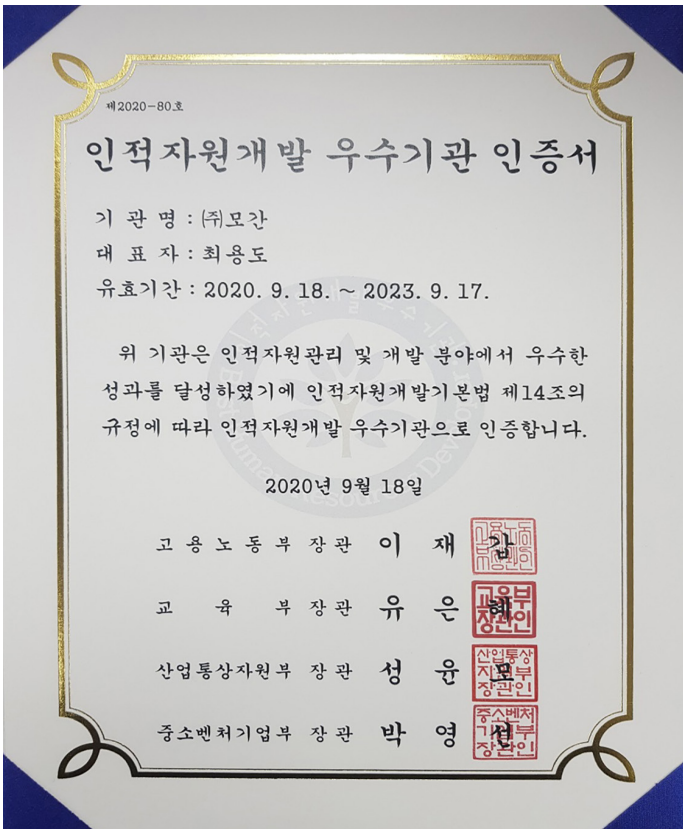 제2020-80호
인적자원개발 우수기관 인증서
기 관 명 : ㈜모간
대 표 자 : 최용도
유효기간 : 2020. 9. 18. ~ 2023. 9. 17.
위 기관은 인적자원관리 및 개발 분야에서 우수한
성과를 달성하였기에 인적자원개발기본법 제14조의
규정에 따라 인적자원개발 우수기관으로 인증합니다.
2020년 9월 18일
고용노동부 장관 이 재 갑
교 육 부 장관 유 은 혜
교육부
장관인
산업통상자원부 장관 성 윤 모
산업통상
자원부
장관인
중소벤처기업부 장관 박 영 선
중소벤처
기업부
장관인